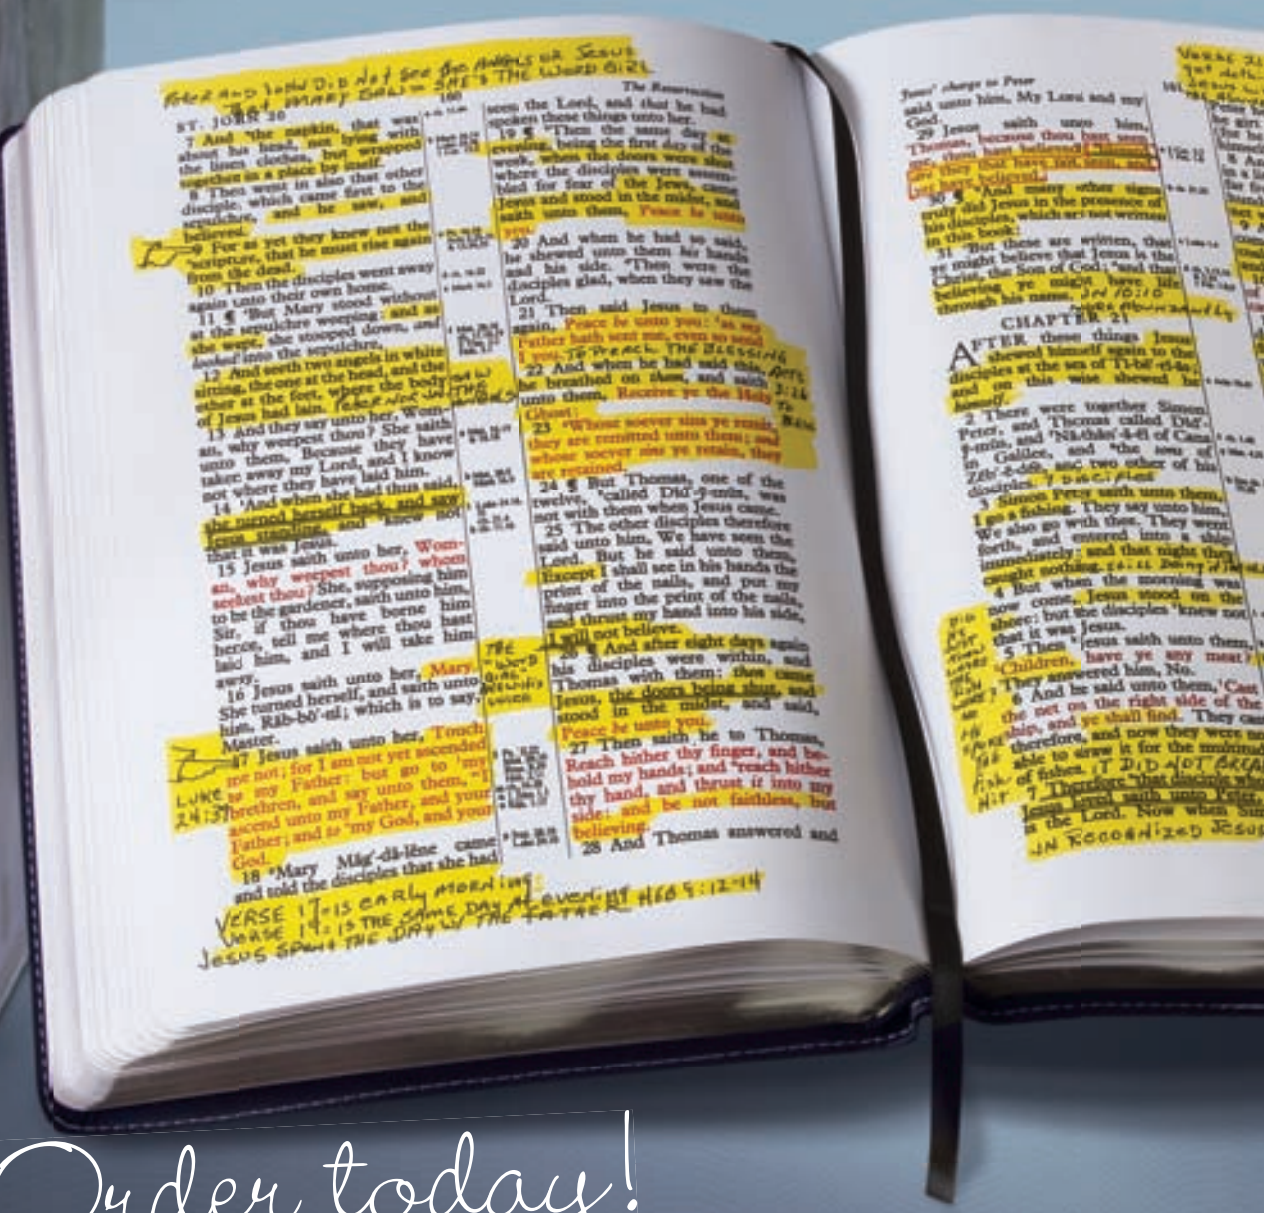 PETER AND JOHN DID NOT See the ANGELS OR JESUS
THAT MARY SAW - SHE'S THE WORD GIRL
ST. JOHN 20
160
The Resurrection
7 And the napkin, that was
about his head, not lying with
the linen clothes, but wrapped
together in a place by itself.
8 Then went in also that other
disciple, which came first to the
sepulchre, and he saw, and
believed.
9 For as yet they knew not the
scripture, that he must rise again
from the dead.
10 Then the disciples went away
again unto their own home.
11 ¶ But Mary stood without
at the sepulchre weeping: and as
she wept, she stooped down, and
looked into the sepulchre,
12 And seeth two angels in white
sitting, the one at the head, and the
other at the feet, where the body
of Jesus had lain.
13 And they say unto her, Wom-
an, why weepest thou? She saith
unto them, Because they have
taken away my Lord, and I know
not where they have laid him.
14 And when she had thus said,
she turned herself back, and saw
Jesus standing, and knew not
that it was Jesus.
15 Jesus saith unto her, Wom-
an, why weepest thou? whom
seekest thou? She, supposing him
to be the gardener, saith unto him,
Sir, if thou have borne him
hence, tell me where thou hast
laid him, and I will take him
away.
16 Jesus saith unto her, Mary.
She turned herself, and saith unto
him, Răb-bō'-nī; which is to say,
Master.
17 Jesus saith unto her, Touch
me not; for I am not yet ascended
to my Father: but go to my
brethren, and say unto them, I
ascend unto my Father, and your
Father; and to my God, and your
God.
LUKE
24:37
18 Mary Măg'-dă-lēne came
and told the disciples that she had
THE
WORD
GIRL
seen the Lord, and that he had
spoken these things unto her.
19 ¶ Then the same day at
evening, being the first day of the
week, when the doors were shut
where the disciples were assem-
bled for fear of the Jews, came
Jesus and stood in the midst, and
saith unto them, Peace be unto
you.
20 And when he had so said,
he shewed unto them his hands
and his side. Then were the
disciples glad, when they saw the
Lord.
21 Then said Jesus to them
again, Peace be unto you: as my
Father hath sent me, even so send
I you. TO PREACH THE BLESSING
ACTS
3:26
22 And when he had said this,
he breathed on them, and saith
unto them, Receive ye the Holy
Ghost:
23 Whose soever sins ye remit,
they are remitted unto them; and
whose soever sins ye retain, they
are retained.
24 ¶ But Thomas, one of the
twelve, called Dĭd'-ȳ-mŭs, was
not with them when Jesus came.
25 The other disciples therefore
said unto him, We have seen the
Lord. But he said unto them,
Except I shall see in his hands the
print of the nails, and put my
finger into the print of the nails,
and thrust my hand into his side,
I will not believe.
26 ¶ And after eight days again
his disciples were within, and
Thomas with them: then came
Jesus, the doors being shut, and
stood in the midst, and said,
Peace be unto you.
27 Then saith he to Thomas,
Reach hither thy finger, and be-
hold my hands; and reach hither
thy hand, and thrust it into my
side: and be not faithless, but
believing.
28 And Thomas answered and
VERSE 17-IS EARLY MORNING
VERSE 19-IS THE SAME DAY AT EVENING HEB 9:12-14
JESUS SPENT THE DAY W/ THE FATHER
Jesus' charge to Peter
said unto him, My Lord and my
God.
29 Jesus saith unto him,
Thomas, because thou hast seen
me, thou hast believed: blessed
are they that have not seen, and
yet have believed.
30 ¶ And many other signs
truly did Jesus in the presence of
his disciples, which are not written
in this book:
31 But these are written, that
ye might believe that Jesus is the
Christ, the Son of God; and that
believing ye might have life
through his name. JN 10:10
CHAPTER 21
AFTER these things Jesus
shewed himself again to the
disciples at the sea of Tī-bē'-rī-ăs;
and on this wise shewed he
himself.
2 There were together Simon
Peter, and Thomas called Dĭd'-
ȳ-mŭs, and Nă-thăn'-ā-ĕl of Cana
in Galilee, and the sons of
Zĕb'-ĕ-dēe, and two other of his
disciples. 7 DISCIPLES
3 Simon Peter saith unto them,
I go a fishing. They say unto him,
We also go with thee. They went
forth, and entered into a ship
immediately; and that night they
caught nothing.
4 But when the morning was
now come, Jesus stood on the
shore: but the disciples knew not
that it was Jesus.
5 Then Jesus saith unto them,
Children, have ye any meat?
They answered him, No.
6 And he said unto them, Cast
the net on the right side of the
ship, and ye shall find. They cast
therefore, and now they were not
able to draw it for the multitude
of fishes. IT DID NOT BREAK
7 Therefore that disciple whom
Jesus loved saith unto Peter,
is the Lord. Now when Sim
JN RECOGNIZED JESUS
Order today!